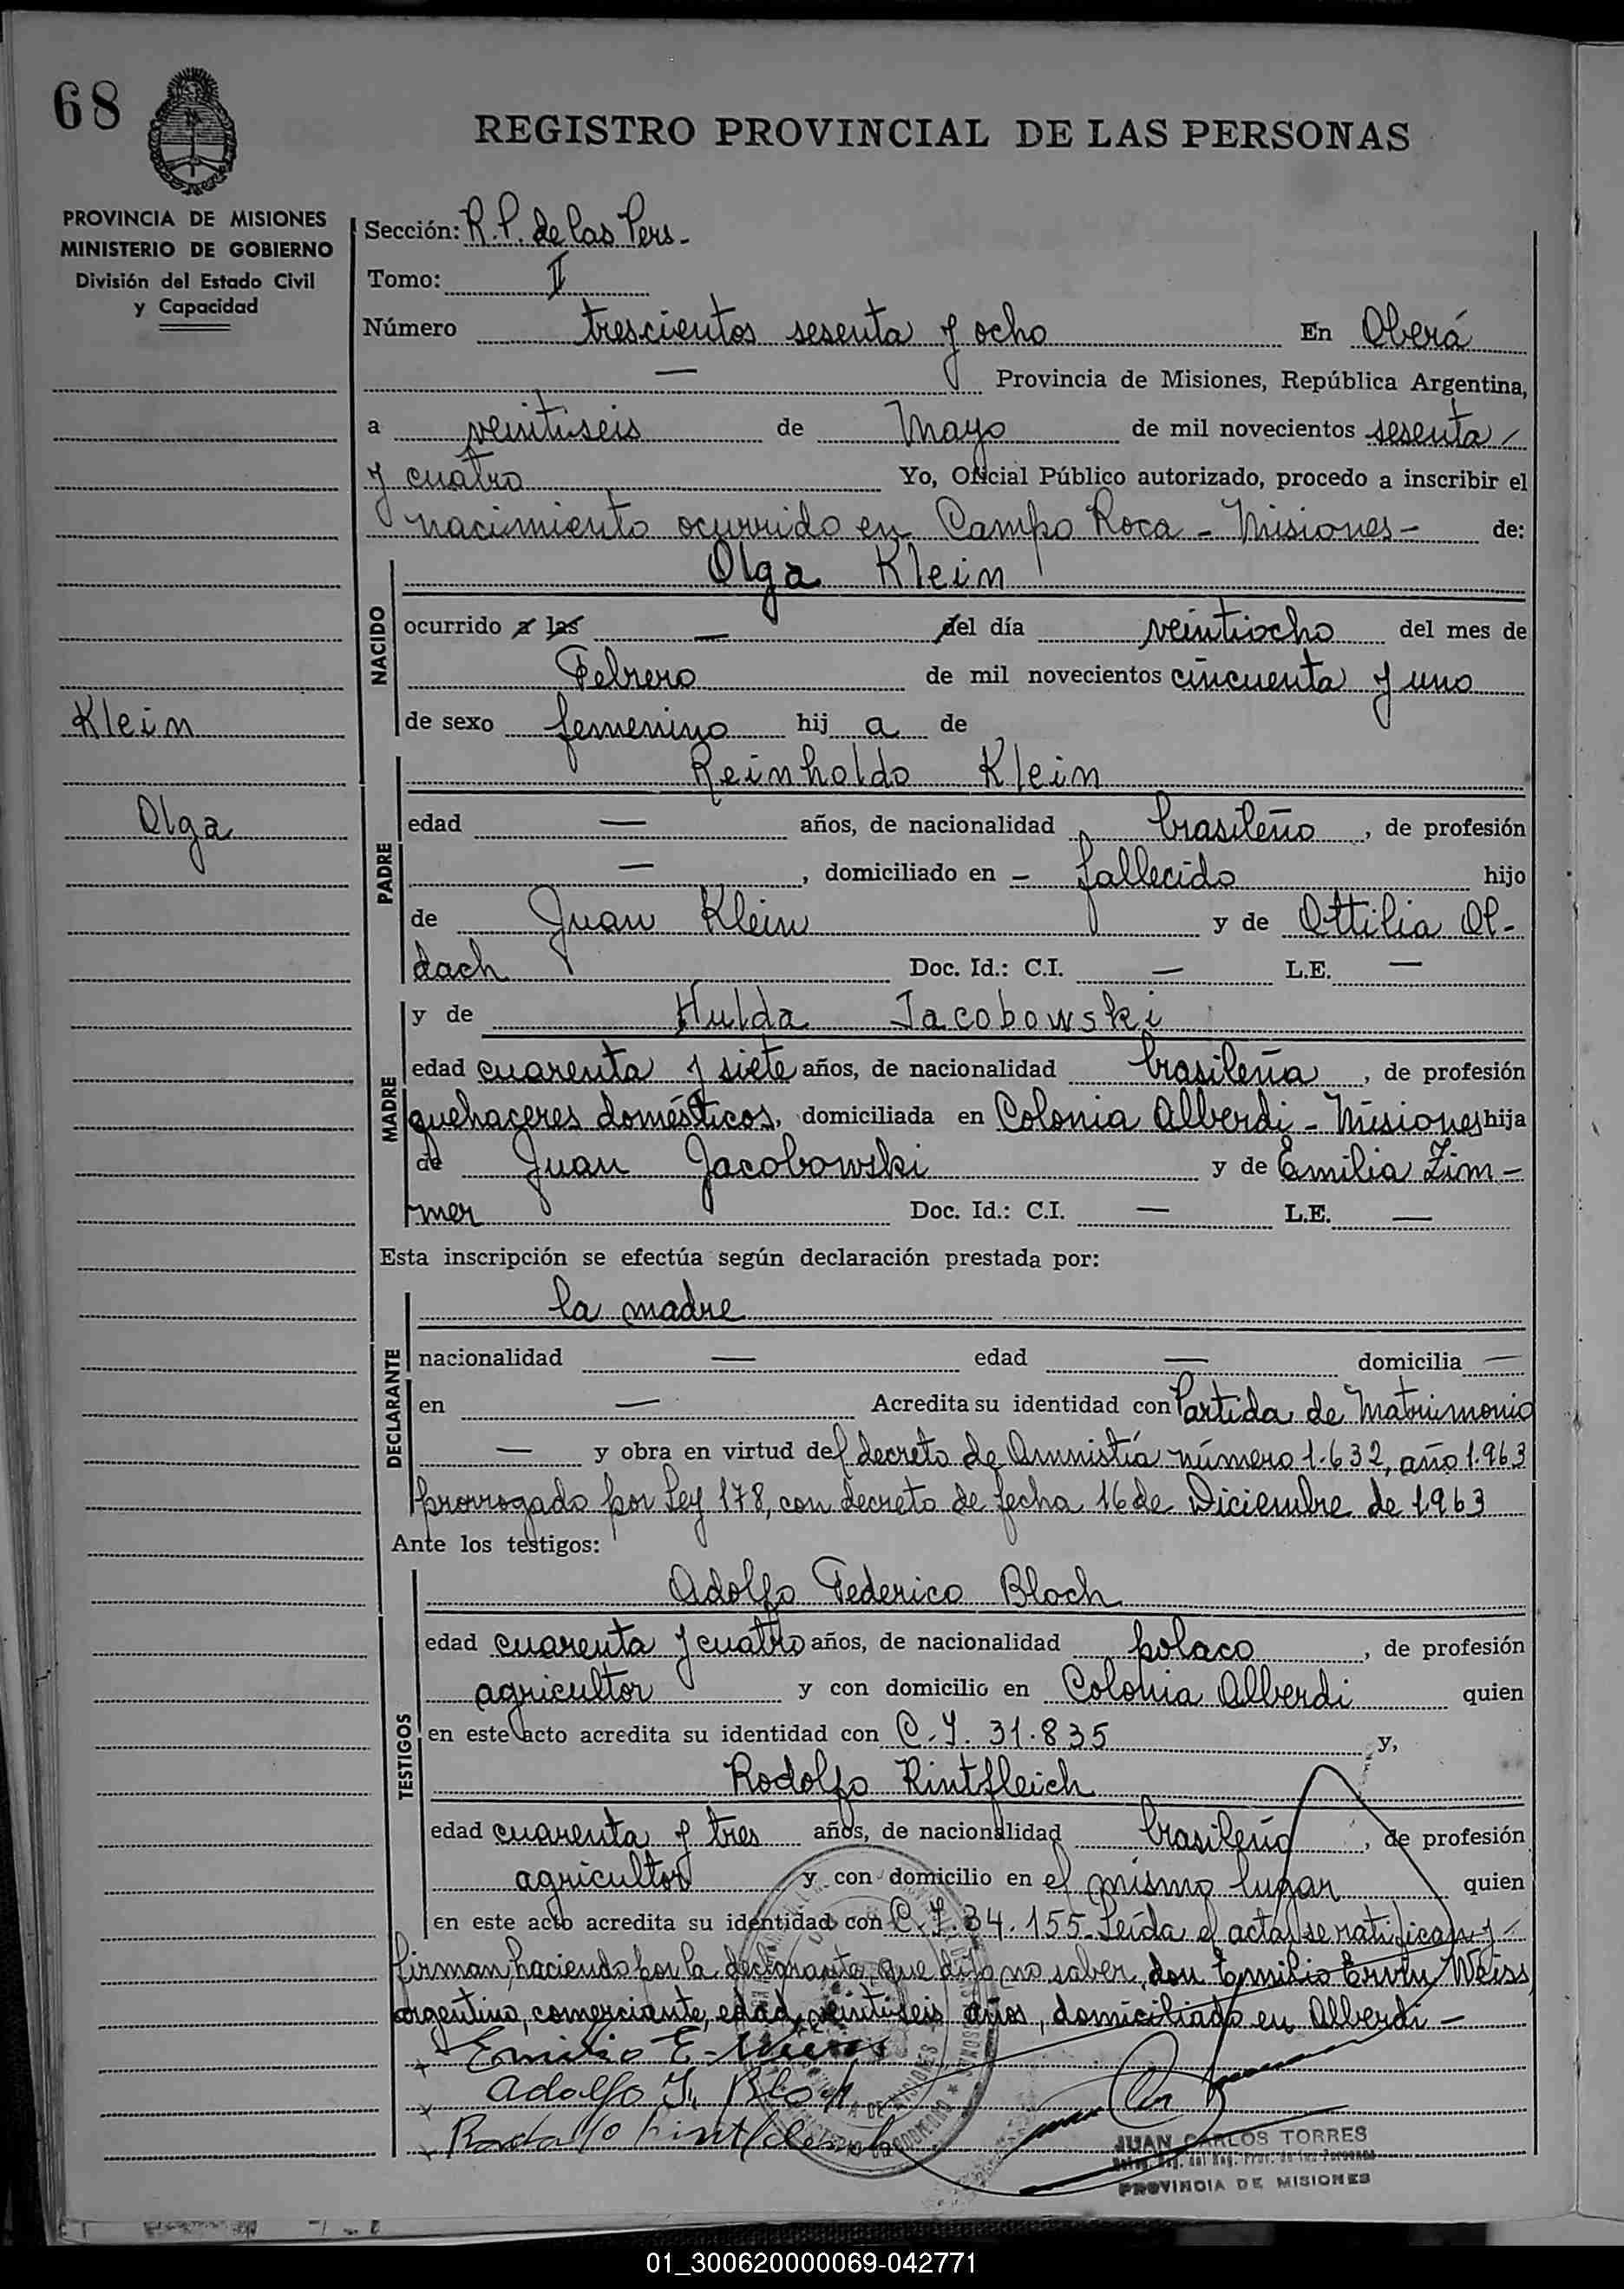 68
REGISTRO PROVINCIAL DE LAS PERSONAS
PROVINCIA DE MISIONES
MINISTERIO DE GOBIERNO
División del Estado Civil
y Capacidad
Sección: R.P. de las Pers.
Tomo: II
Número trescientos sesenta y ocho En Oberá
— Provincia de Misiones, República Argentina,
a veintiseis de Mayo de mil novecientos sesenta
y cuatro Yo, Oficial Público autorizado, procedo a inscribir el
nacimiento ocurrido en Campo Roca - Misiones - de:
NACIDO
Olga Klein
ocurrido a las — del día veintiocho del mes de
Febrero de mil novecientos cincuenta y uno
Klein
de sexo femenino hij a de
PADRE
Reinholdo Klein
Olga
edad — años, de nacionalidad brasileño, de profesión
—, domiciliado en - fallecido hijo
de Juan Klein y de Ottilia Ol-
dach Doc. Id.: C.I. — L.E. —
MADRE
y de Hulda Jacobowski
edad cuarenta y siete años, de nacionalidad brasileña, de profesión
quehaceres domésticos, domiciliada en Colonia Alberdi - Misiones hija
de Juan Jacobowski y de Emilia Zim-
mer Doc. Id.: C.I. — L.E. —
Esta inscripción se efectúa según declaración prestada por:
DECLARANTE
la madre
nacionalidad — edad — domicilia —
en — Acredita su identidad con Partida de Matrimonio
— y obra en virtud del decreto de Amnistía número 1.632, año 1.963
prorrogado por Ley 178, con decreto de fecha 16 de Diciembre de 1963
Ante los testigos:
TESTIGOS
Adolfo Federico Bloch
edad cuarenta y cuatro años, de nacionalidad polaco, de profesión
agricultor y con domicilio en Colonia Alberdi quien
en este acto acredita su identidad con C.I. 31.835 y,
Rodolfo Rintfleich
edad cuarenta y tres años, de nacionalidad brasileño, de profesión
agricultor y con domicilio en el mismo lugar quien
en este acto acredita su identidad con C.I. 34.155. Leída el acta, se ratifican y
firman, haciendo por la declarante, que dijo no saber, don Emilio Ervin Weiss
argentino, comerciante, edad veintiseis años, domiciliado en Alberdi -
Emilio E. Weiss
Adolfo F. Bloch
JUAN CARLOS TORRES
PROVINCIA DE MISIONES
01_300620000069-042771